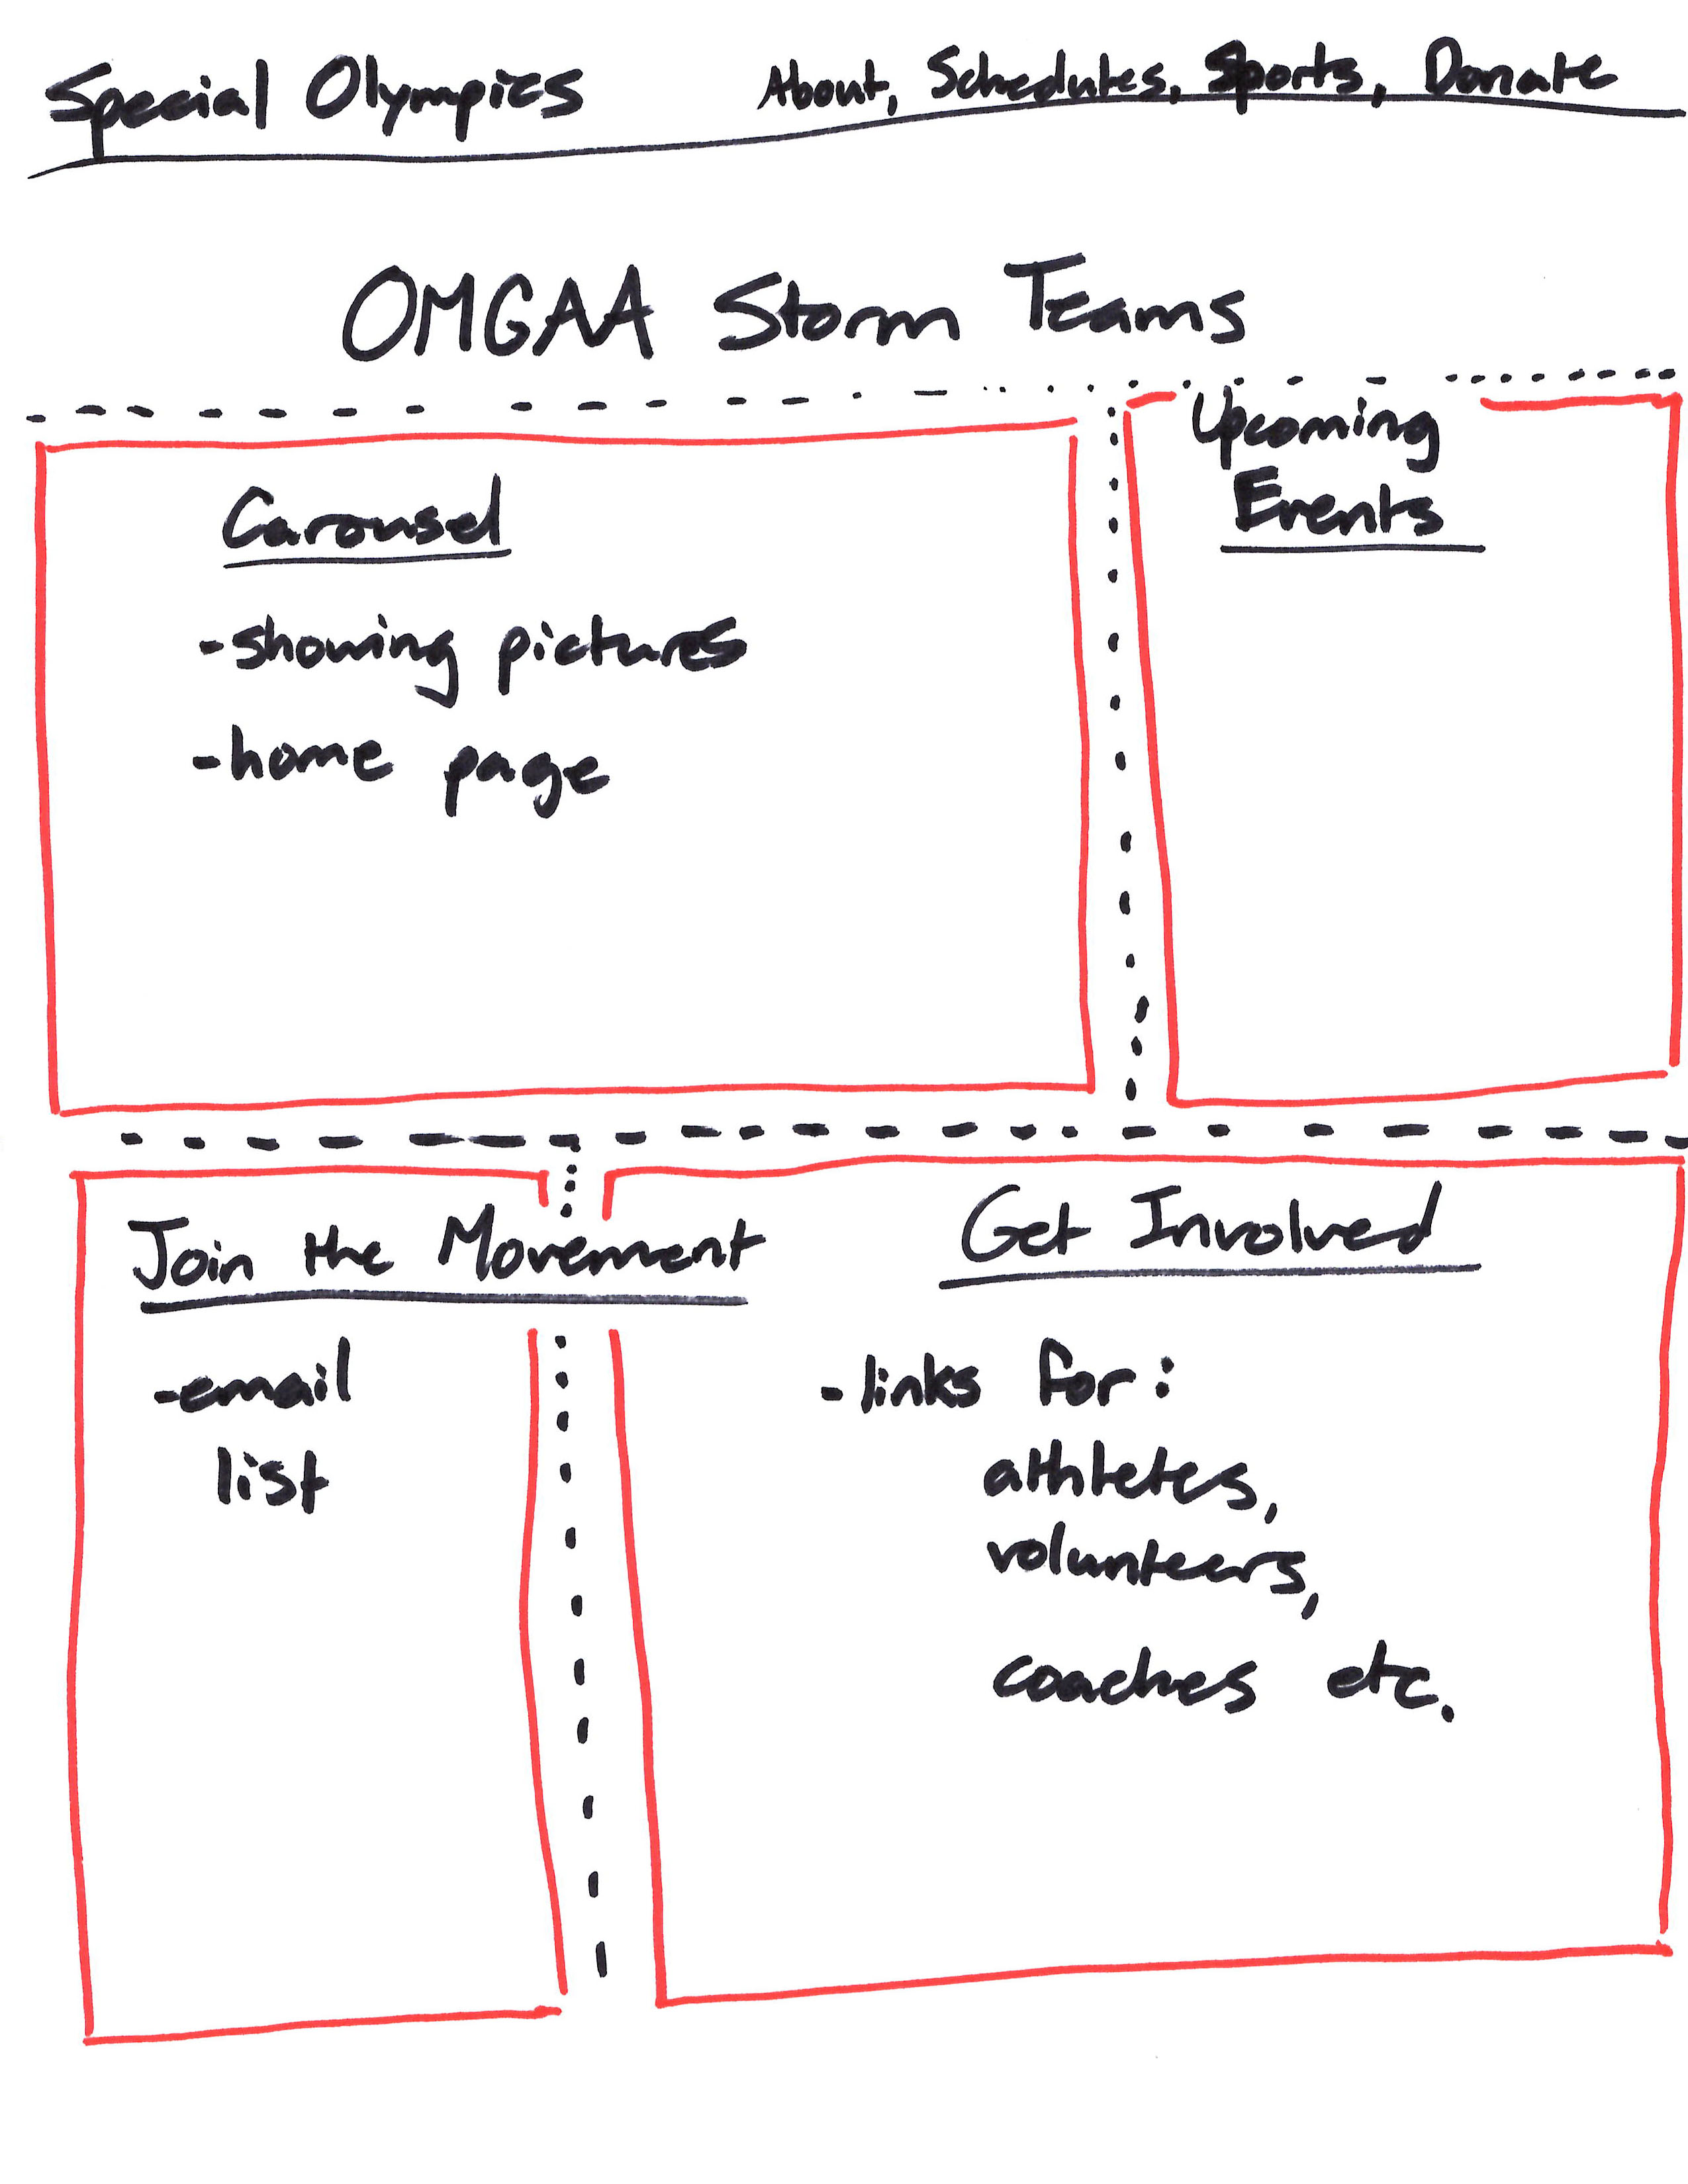 Special Olympics
About, Schedules, Sports, Donate
OMGAA Storm Teams
Carousel
-showing pictures
-home page
Upcoming
Events
Join the Movement
-email
list
Get Involved
-links for:
athletes,
volunteers,
coaches etc.